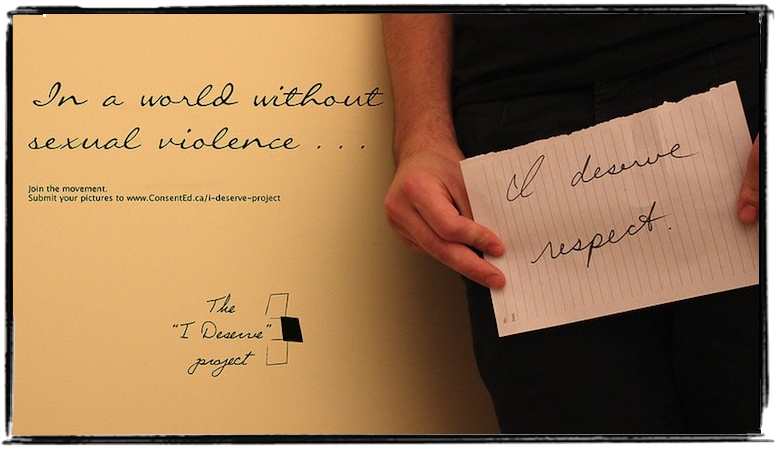 In a world without
sexual violence . . .
Join the movement.
Submit your pictures to www.ConsentEd.ca/i-deserve-project
The
"I Deserve"
project
I deserve
respect.